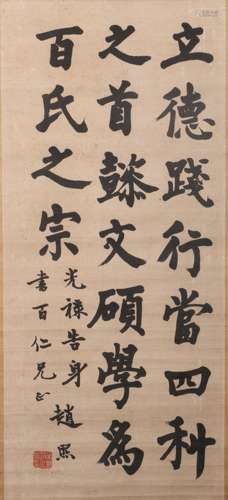 立德踐行當四科
之首懿文碩學為
百氏之宗
光祿告身 趙熙
書百仁兄正